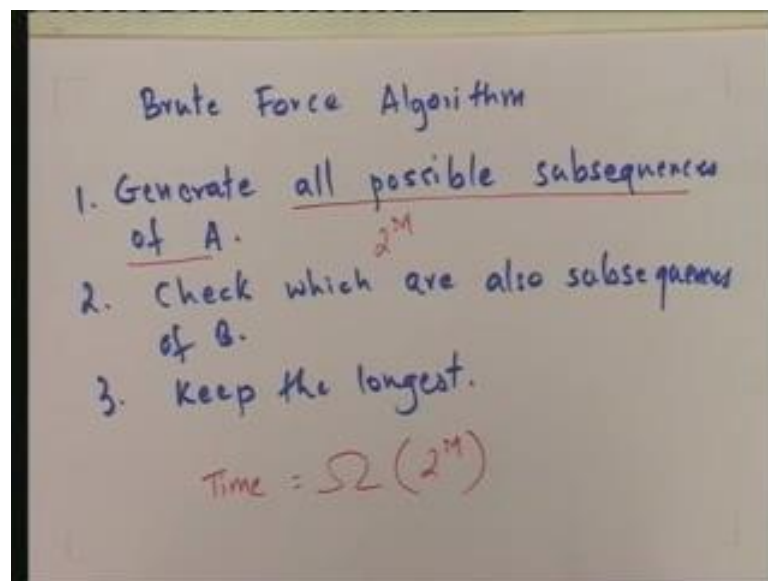 Brute Force Algorithm
1. Generate all possible subsequences
of A.
2^M
2. Check which are also subsequences
of B.
3. Keep the longest.
Time = Ω(2^M)